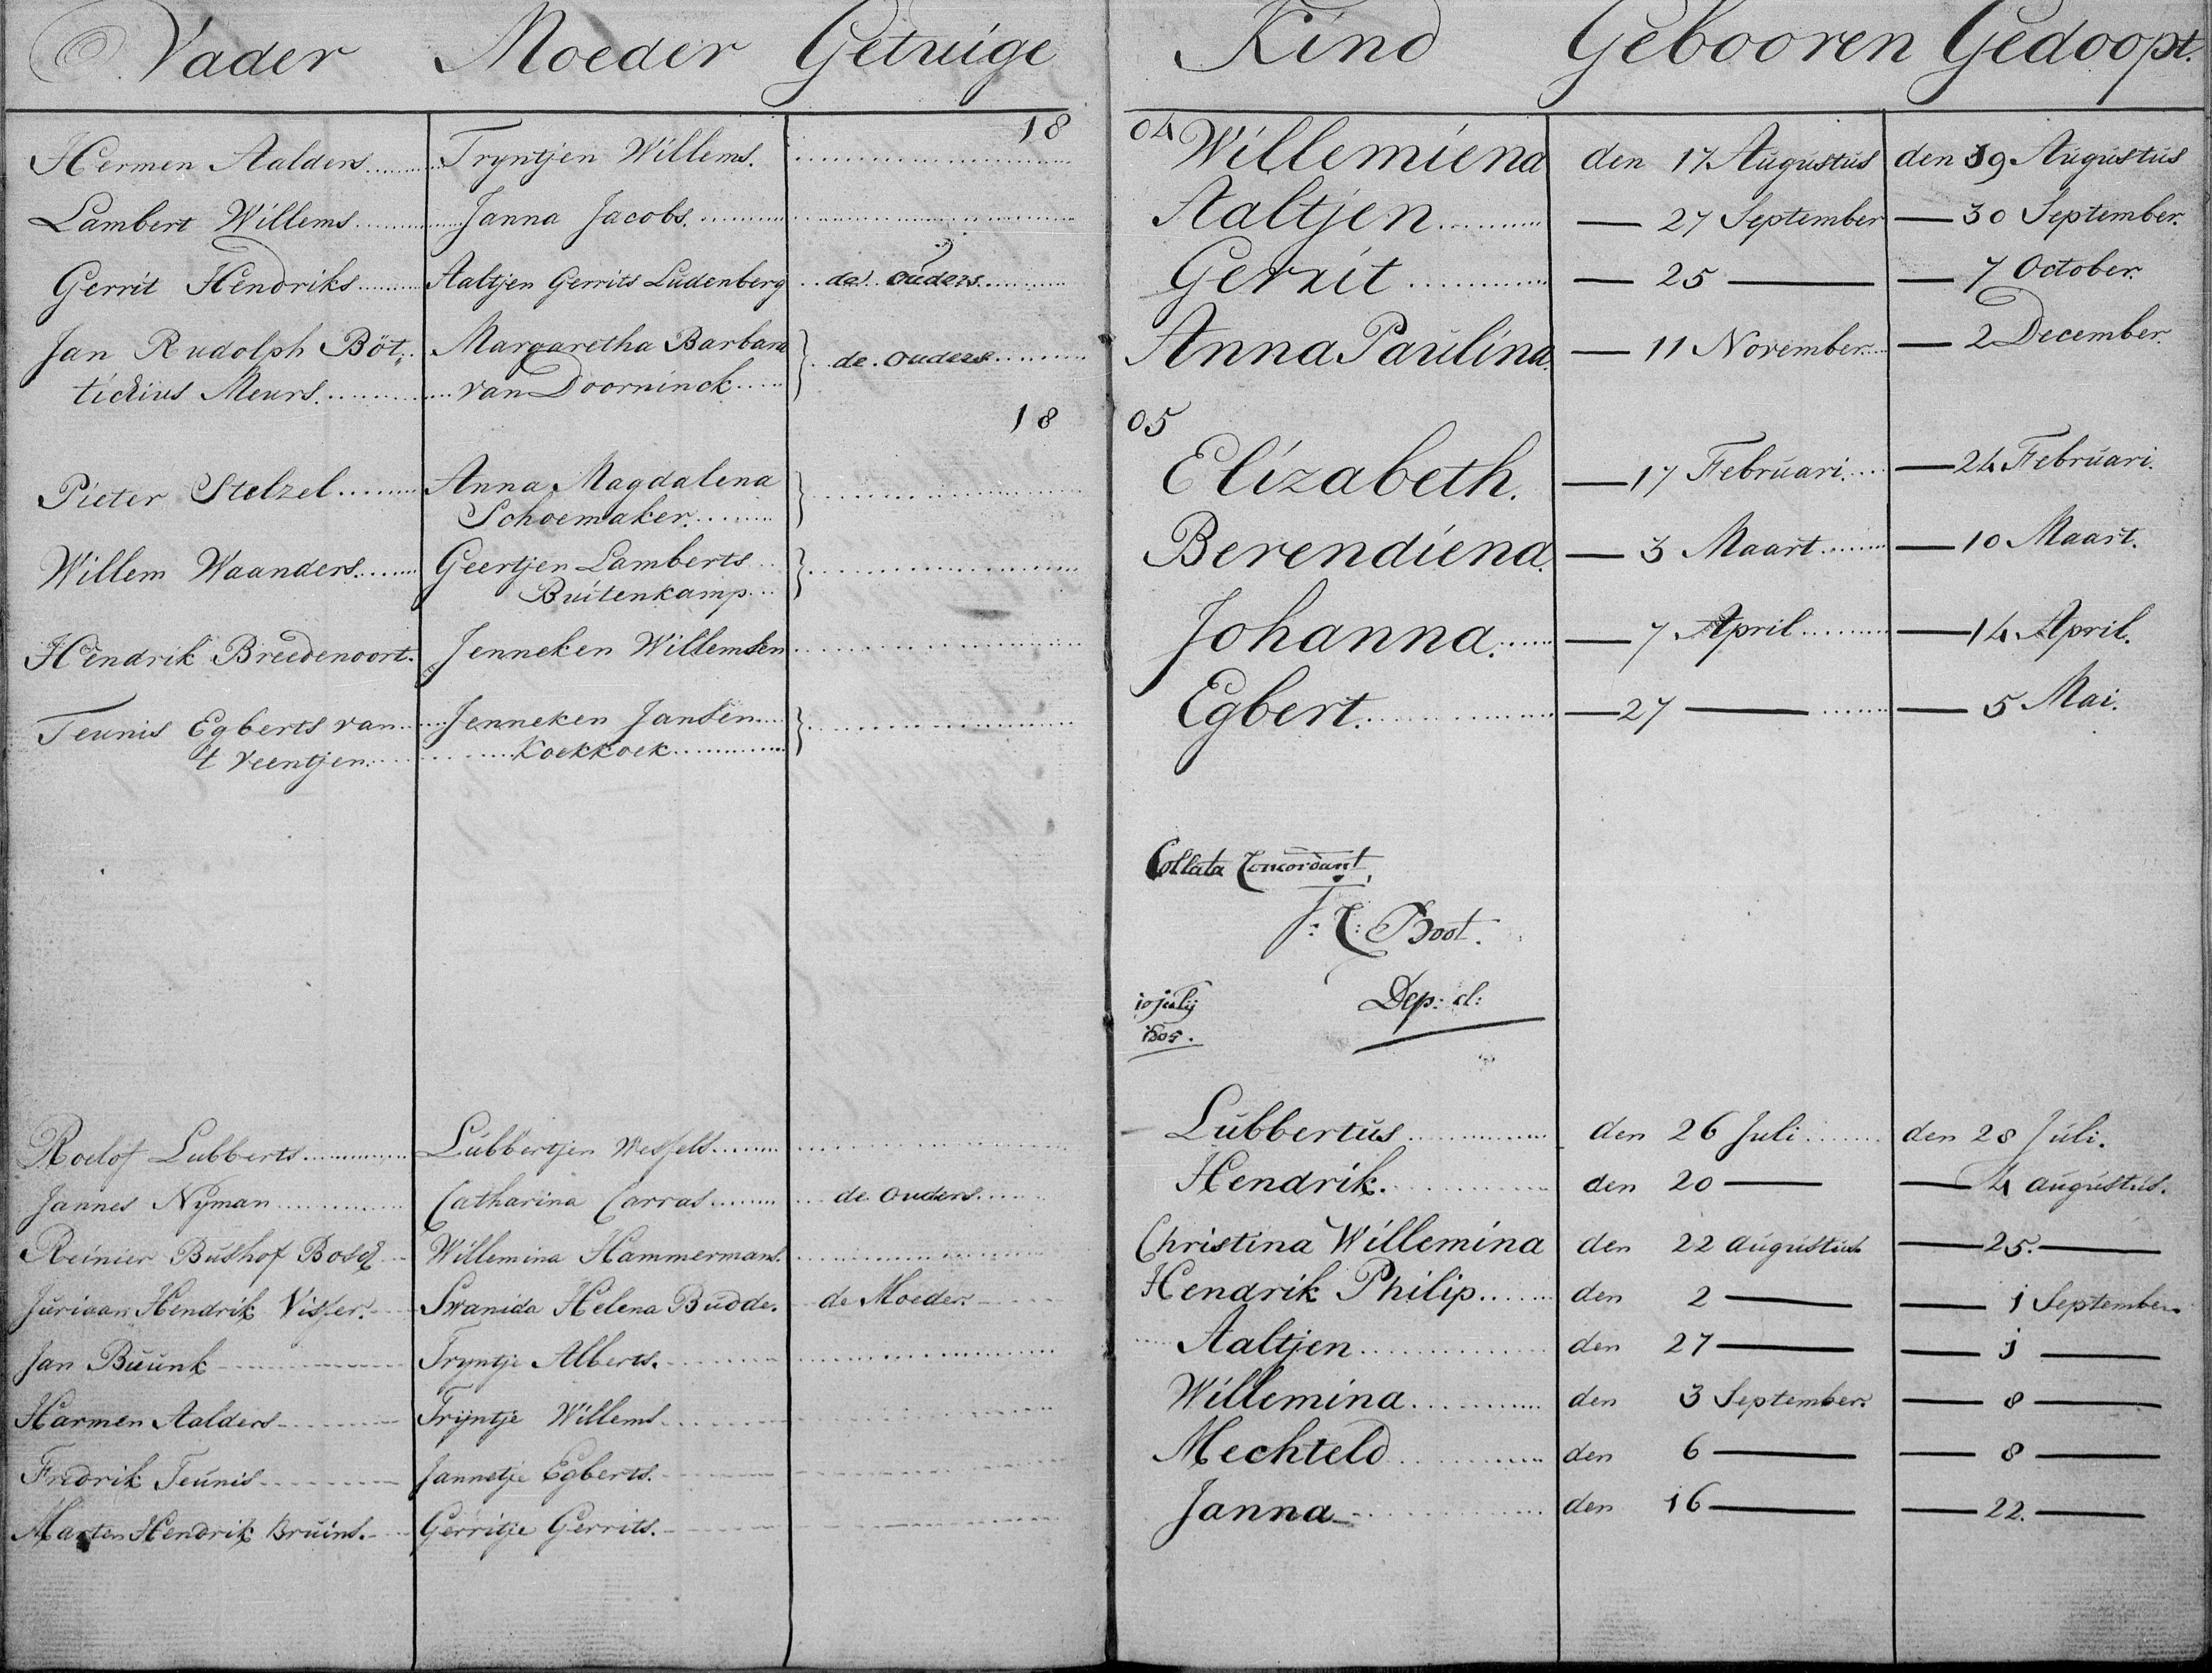 Vader Moeder Getuige Kind Gebooren Gedoopt.
1804
Hermen Aalders Tryntjen Willems. Willemiena den 17 Augustus den 19 Augustus
Lambert Willems Janna Jacobs. Aaltjen — 27 September — 30 September.
Gerrit Hendriks Aaltjen Gerrits Ludenberg de Ouders Gerrit — 25 — — 7 October.
Jan Rudolph Böt, Margaretha Barbara } de Ouders Anna Paulina — 11 November — 2 December.
tichius Meurs. van Doorninck
1805
Pieter Stelzel Anna Magdalena } Elizabeth. — 17 Februari — 24 Februari.
Schoemaker.
Willem Waanders Geertjen Lamberts } Berendiena. — 3 Maart — 10 Maart.
Buitenkamp
Hendrik Breedenoort. Jenneken Willemsen Johanna. — 7 April — 14 April.
Teunis Egberts van Jenneken Jansen } Egbert. — 27 — — 5 Mai.
't Veentjen. Koekkoek
Collata Concordant,
J: C: Boot.
10 julij Dep: cl:
1805.
Roelof Lubberts Lubbertjen Wessels Lubbertus den 26 Juli den 28 Juli.
Jannes Nyman Catharina Carras de Ouders Hendrik. den 20 — — 4 augustus.
Reinier Bushof Bosch Willemina Hammermans. Christina Willemina den 22 augustus — 25. —
Juriaan Hendrik Visser. Swanida Helena Budde. de Moeder. Hendrik Philip den 2 — — 1 September
Jan Buunk Tryntje Alberts. Aaltjen den 27 — — 1 —
Harmen Aalders Trijntje Willems Willemina den 3 September. — 8 —
Fredrik Teunis Jannetje Egberts. Mechteld den 6 — — 8 —
Marten Hendrik Bruins. Gerritje Gerrits. Janna den 16 — — 22. —